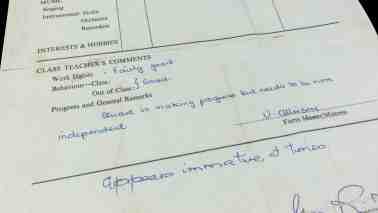 MUSIC
Singing
Instrumental Skills
Orchestra
Recorders
INTERESTS & HOBBIES
CLASS TEACHER'S COMMENTS
Work Habits - Fairly good
Behaviour—Class: } Good.
Out of Class:
Progress and General Remarks
is making progress but needs to be more
independent
Form Master/Mistress
appears immature at times